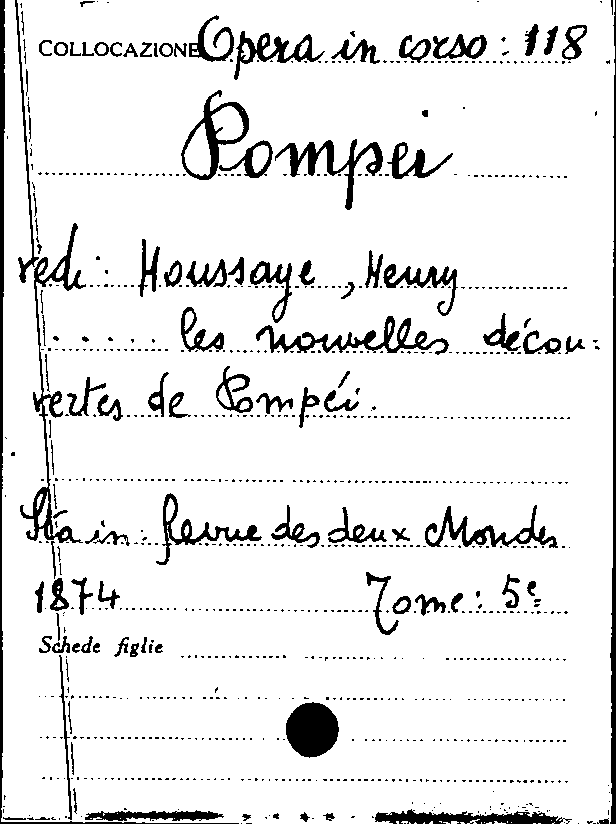 COLLOCAZIONE Opera in corso: 118
Pompei
vedi: Houssaye, Henry
..... les nouvelles décou:
vertes de Pompéi.
Sta in: Revue des deux Mondes
1874 Tome: 5e
Schede figlie